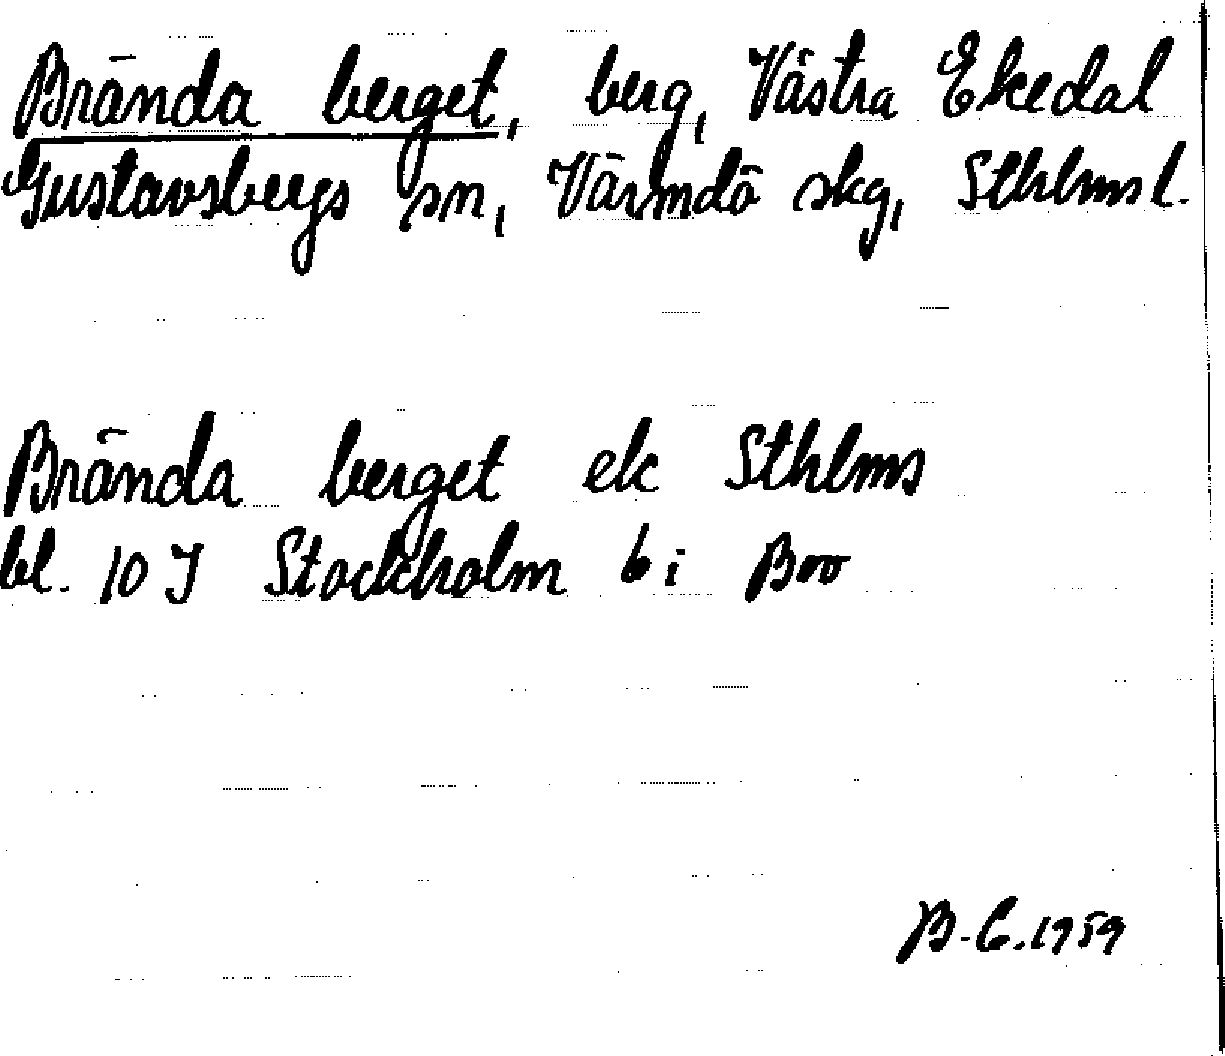 Brända berget, berg, Västra Ekedal
Gustavsbergs sn, Värmdö skg, Sthlms l.
Brända berget ek Sthlms
bl. 10 J Stockholm 6 i Boo
B-C. 1959